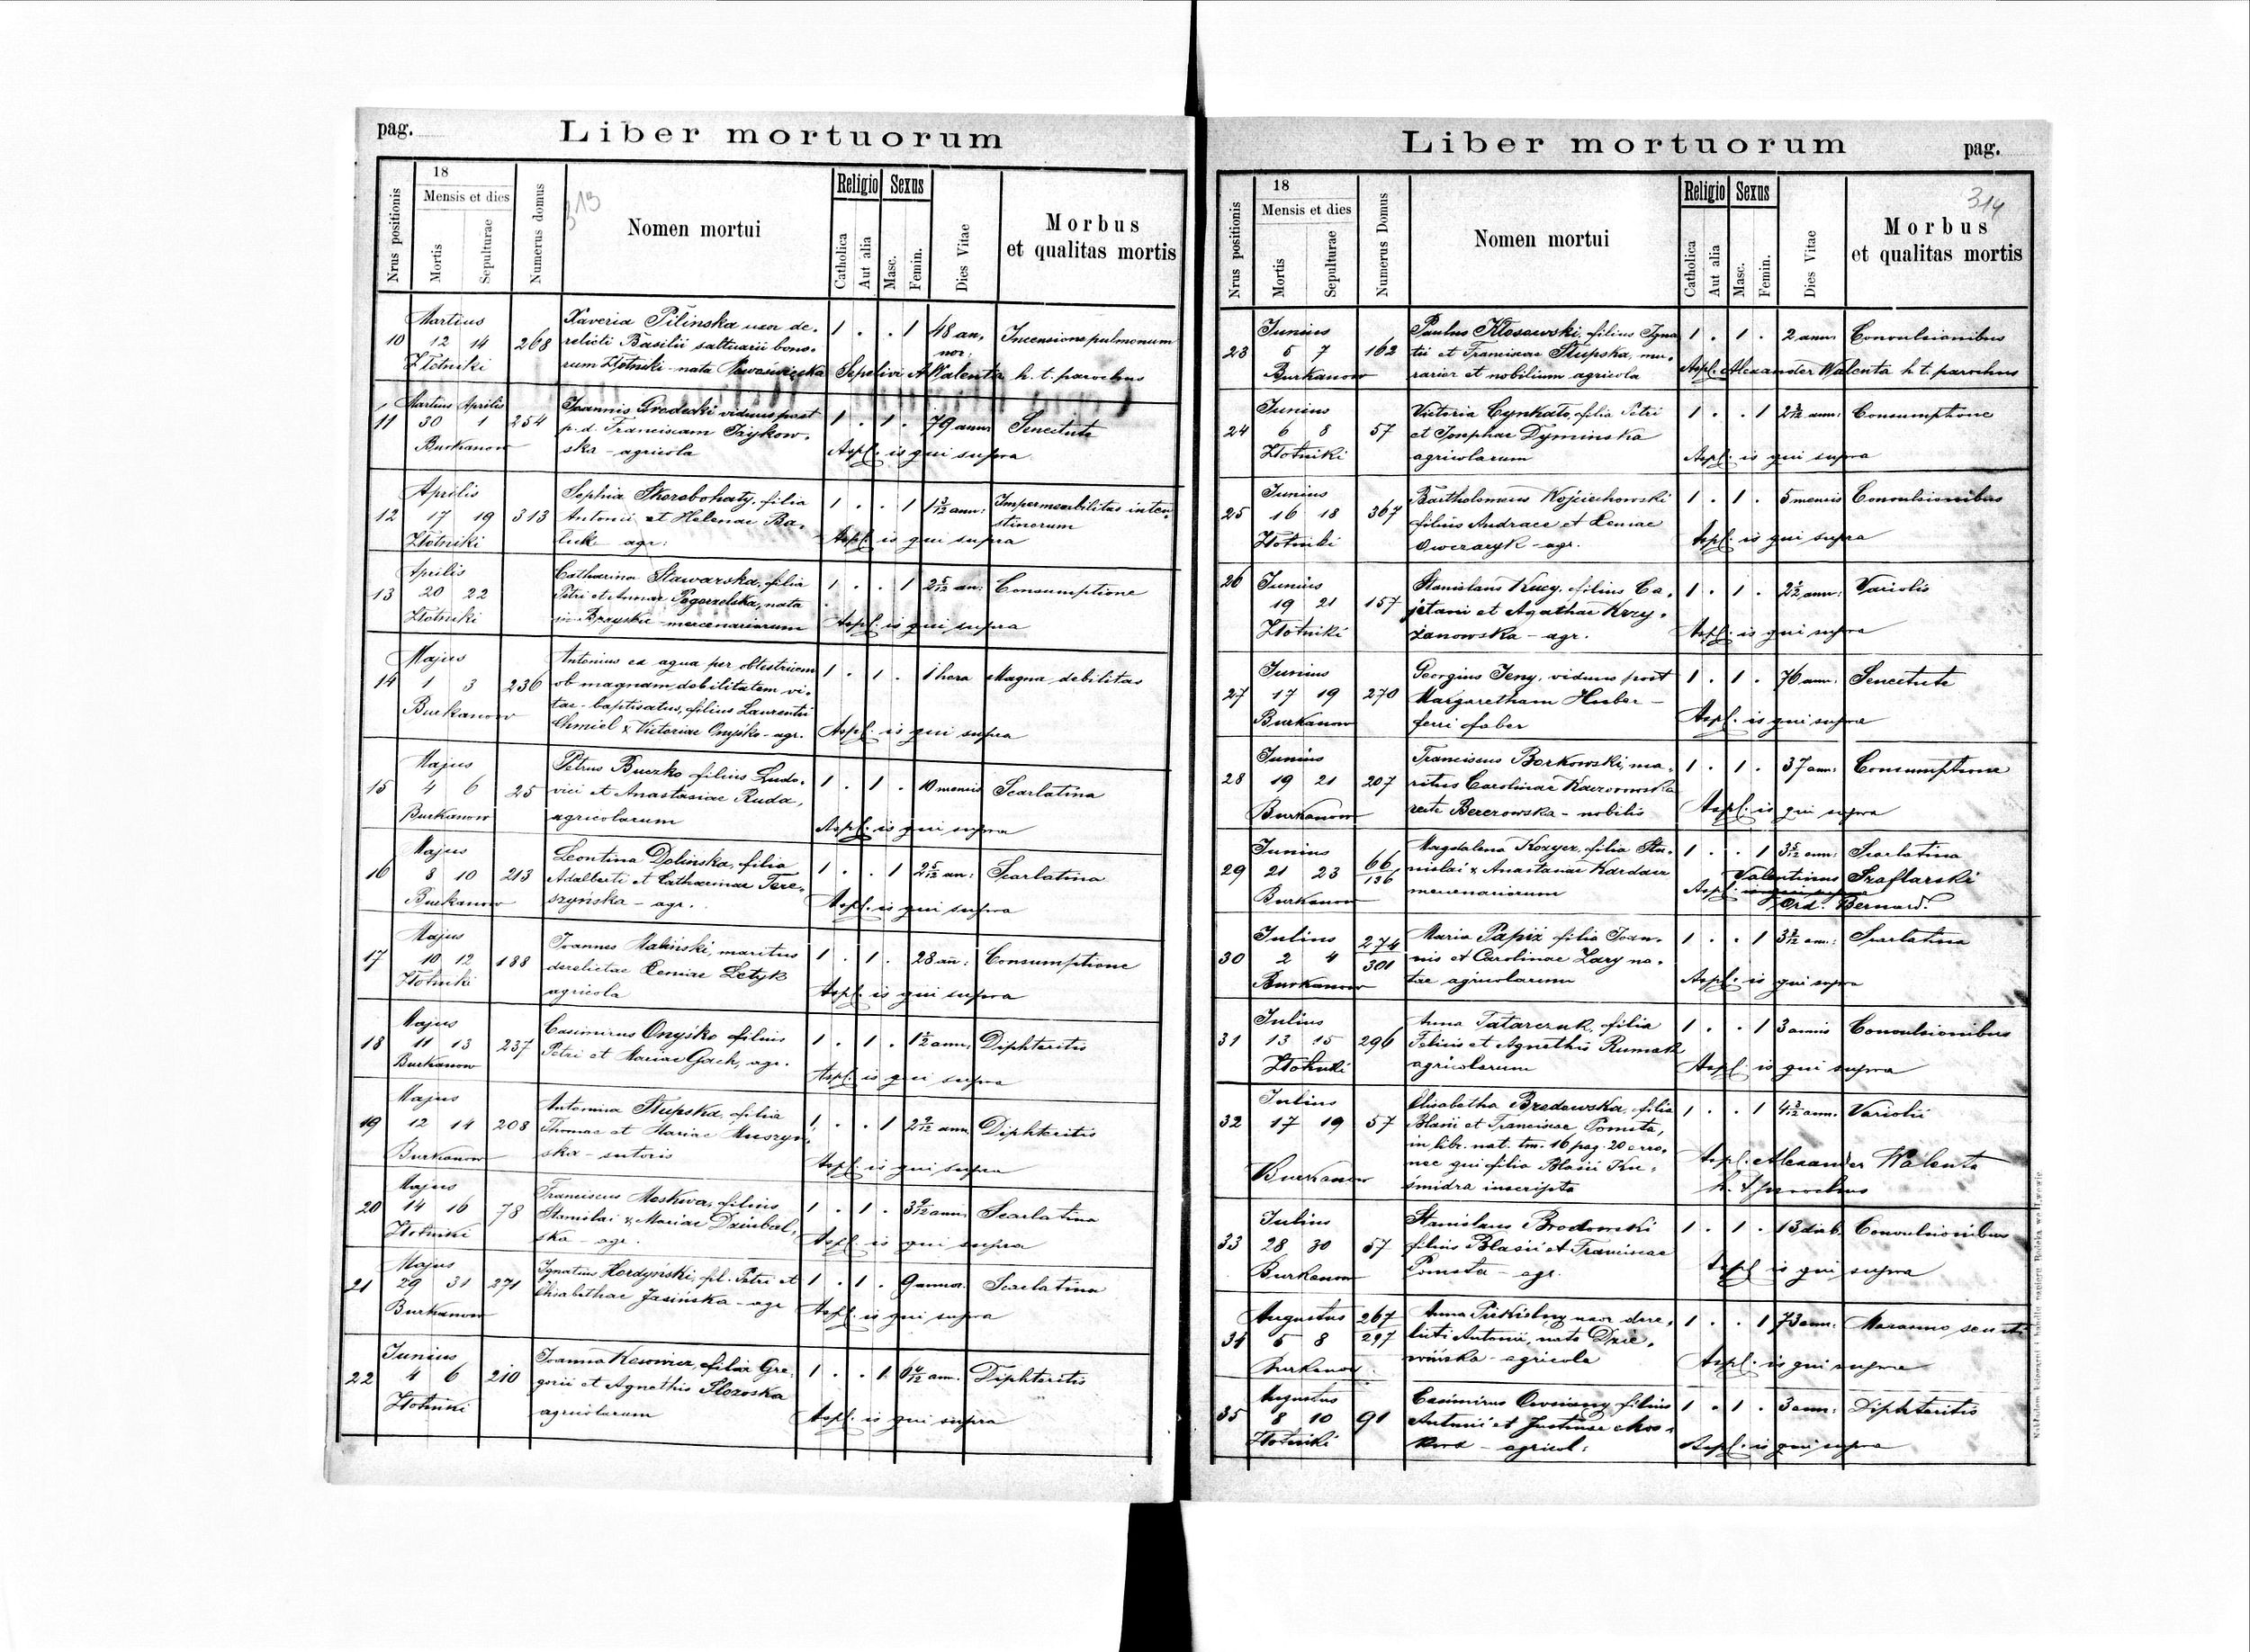 pag.
Liber mortuorum
Nrus positionis
18
Mensis et dies
Mortis
Sepulturae
Numerus domus
313
Nomen mortui
Religio
Catholica
Aut alia
Sexus
Masc.
Femin.
Dies Vitae
Morbus
et qualitas mortis
Martius
10 12 14 268
Złotniki
Xaveria Pilinska uxor de-
relicti Basilii saltuarii bono-
rum Złotniki - nata
1 . . 1 48 an. Incensione pulmonum
nor:
Sepelivi A Walenta h. t. parochus
Martius Aprilis
11 30 1 254
Burkanow
Joannis Grodecki viduus post
p. d. Franciscam Zaykow-
ska - agricola
1 . 1 . 79 ann. Senectute
Aspl. is qui supra
Aprilis
12 17 19 313
Złotniki
Sophia Skorobohaty, filia
Antonii et Helenae Ba-
luk agr:
1 . . 1 1 3/12 ann: Impermeabilitas intes-
stinorum
Aspl. is qui supra
Aprilis
13 20 22
Złotniki
Catharina Stawarska, filia
Petri et Annae Pogorzelska, nata
in - mercenariorum
1 . . 1 2 5/12 an: Consumptione
Aspl. is qui supra
Majus
14 1 3 236
Burkanow
Antonius ex aqua per obstetricem
ob magnam debilitatem vi-
tae - baptisatus, filius Laurentii
Chmiel & Victoriae Onyśko - agr.
1 . 1 . 1 hora Magna debilitas
Aspl. is qui supra
Majus
15 4 6 25
Burkanow
Petrus Buczko filius Ludo-
vici et Anastasiae Ruda,
agricolarum
1 . 1 . 10 mensis Scarlatina
Aspl. is qui supra
Majus
16 8 10 213
Burkanow
Leontina Dolinska, filia
Adalberti et Catharinae Tere-
szyńska - agr.
1 . . 1 2 5/12 an: Scarlatina
Aspl. is qui supra
Majus
17 10 12 188
Złotniki
Joannes Maliński, maritus
derelictae Xeniae Letyk
agricola
1 . 1 . 28 an: Consumptione
Aspl. is qui supra
Majus
18 11 13 237
Burkanow
Casimirus Onyśko filius
Petri et Mariae Gach, agr.
1 . 1 . ann. Diphteritis
Aspl. is qui supra
Majus
19 12 14 208
Burkanow
Antonina Słupska, filia
Thomae et Mariae Muszyn-
ska - sutoris
1 . . 1 2 9/12 ann. Diphteritis
Aspl. is qui supra
Majus
20 14 16 78
Złotniki
Franciscus Moskwa, filius
Stanislai & Mariae Dziubal-
ska - agr.
1 . 1 . 3 9/12 anni Scarlatina
Aspl. is qui supra
Majus
21 29 31 271
Burkanow
Ignatius Hordyński, fil. Petri et
Elisabethae Jasińska - agr
1 . 1 . 9 annor. Scarlatina
Aspl. is qui supra
Junius
22 4 6 210
Złotniki
Joanna filia Gre-
gorii et Agnethis
agricolarum
1 . . 1 ann. Diphteritis
Aspl. is qui supra
Liber mortuorum
pag.
Nrus positionis
18
Mensis et dies
Mortis
Sepulturae
Numerus Domus
Nomen mortui
Religio
Catholica
Aut alia
Sexus
Masc.
Femin.
Dies Vitae
314
Morbus
et qualitas mortis
Junius
23 5 7 162
Burkanow
Paulus Kłosowski, filius Igna
tii et Franciscae Słupska, mu-
rarior et nobilium agricola
1 . 1 . 2 ann: Convulsionibus
Aspl. Alexander Walenta h. t. parochus
Junius
24 6 8 57
Złotniki
Victoria Cynkato, filia Petri
et Josephae Dyminska
agricolarum
1 . . 1 ann: Consumptione
Aspl. is qui supra
Junius
25 16 18 367
Złotniki
Bartholomeus Wojciechowski
filius Andreae et Xeniae
Owczaryk - agr.
1 . 1 . 5 mensis Convulsionibus
Aspl. is qui supra
26 Junius
19 21 157
Złotniki
Stanislaus Kucy, filius Ca-
jetani et Agathae Krzy-
żanowska - agr.
1 . 1 . ann: Variolis
Aspl. is qui supra
Junius
27 17 19 270
Burkanow
Georgius Jeny, viduus post
Margaretham Huber -
ferri faber
1 . 1 . 76 ann: Senectute
Aspl. is qui supra
Junius
28 19 21 207
Burkanow
Franciscus Borkowski, ma-
ritus Carolinae
recte Berezowska - nobilis
1 . 1 . 37 ann: Consumptione
Aspl. is qui supra
Junius
29 21 23 66/136
Burkanow
Magdalena Kozyer, filia Sta-
nislai & Anastasiae Kardasz
mercenariorum
1 . . 1 3 5/12 ann: Scarlatina
Valentinus Szaflarski
Aspl. is qui supra
Ord. Bernard.
Julius
30 2 4 274/301
Burkanow
Maria Papiż filia Joan-
nis et Carolinae Lary na-
tae agricolarum
1 . . 1 ann: Scarlatina
Aspl. is qui supra
Julius
31 13 15 296
Złotniki
Anna Tatarczuk, filia
Felicis et Agnethis Rumak
agricolarum
1 . . 1 3 annis Convulsionibus
Aspl. is qui supra
Julius
32 17 19 57
Burkanow
Elisabetha Brodowska, filia
Blasii et Franciscae Pomsta,
in libr. nat. tm. 16 pag. 20 erro-
nee qui filia Blasii Ku-
śmidra inscripta
1 . . 1 4 3/12 ann. Variolis
Aspl. Alexander Walenta
h. t. parochus
Julius
33 28 30 57
Burkanow
Stanislaus Brodowski
filius Blasii et Franciscae
Pomsta - agr.
1 . 1 . 13 dieb. Convulsionibus
Aspl. is qui supra
Augustus
34 5 8 267/297
Burkanow
Anna Piekielny uxor dere-
licti Antonii, nata Dzie-
wińska - agricola
1 . . 1 73 ann: Marasmo
Aspl. is qui supra
Augustus
35 8 10 91
Złotniki
Casimirus Owsiany filius
Antonii et Justinae Mos-
kwa - agricol:
1 . 1 . 3 ann: Diphteritis
Aspl. is qui supra